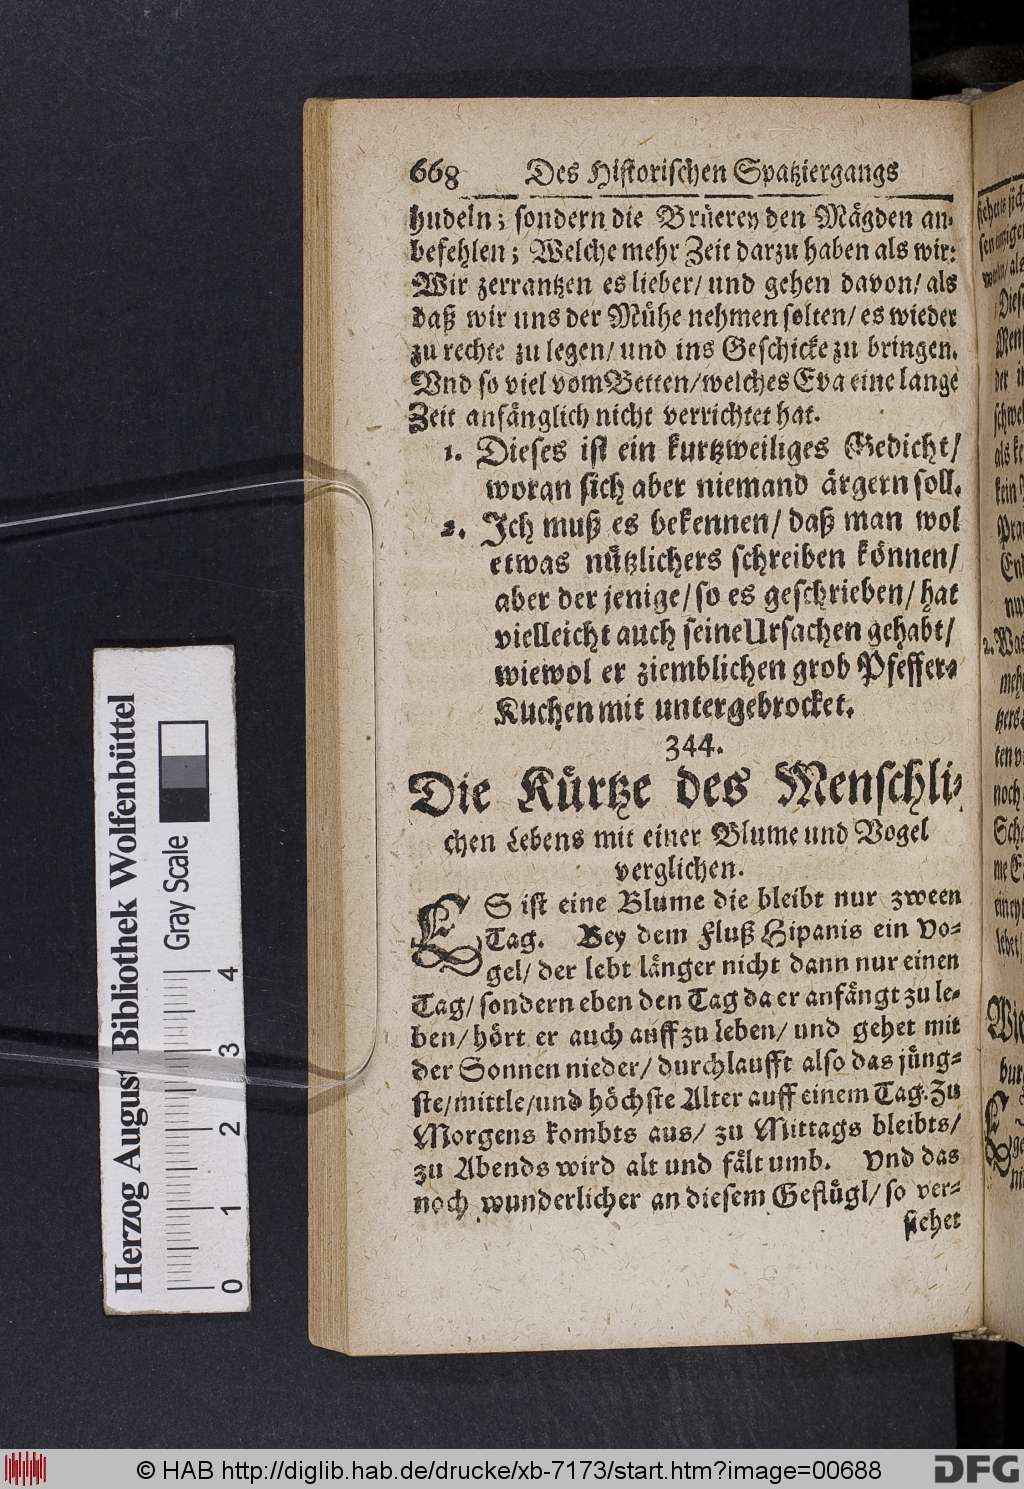 668 Des Historischen Spatziergangs
hudeln; sondern die Brüerey den Mägden an-
befehlen; Welche mehr Zeit darzu haben als wir:
Wir zerrantzen es lieber/ und gehen davon/ als
daß wir uns der Mühe nehmen solten/ es wieder
zu rechte zu legen/ und ins Geschicke zu bringen.
Vnd so viel vom Betten/ welches Eva eine lange
Zeit anfänglich nicht verrichtet hat.
1. Dieses ist ein kurtzweiliges Gedicht/
woran sich aber niemand ärgern soll.
2. Ich muß es bekennen/ daß man wol
etwas nützlichers schreiben können/
aber der jenige/ so es geschrieben/ hat
vielleicht auch seine Ursachen gehabt/
wiewol er ziemblichen grob Pfeffer-
Kuchen mit untergebrocket.
344.
Die Kürtze des Menschli-
chen Lebens mit einer Blume und Vogel
verglichen.
ES ist eine Blume die bleibt nur zween
Tag. Bey dem Fluß Hipanis ein Vo-
gel/ der lebt länger nicht dann nur einen
Tag/ sondern eben den Tag da er anfängt zu le-
ben/ hört er auch auff zu leben/ und gehet mit
der Sonnen nieder/ durchlaufft also das jüng-
ste/ mittle/ und höchste Alter auff einem Tag. Zu
Morgens kombts aus/ zu Mittags bleibts/
zu Abends wird alt und fält umb. Vnd das
noch wunderlicher an diesem Geflügl/ so ver-
siehet
Herzog August Bibliothek Wolfenbüttel
Gray Scale
0 1 2 3 4
© HAB http://diglib.hab.de/drucke/xb-7173/start.htm?image=00688
DFG